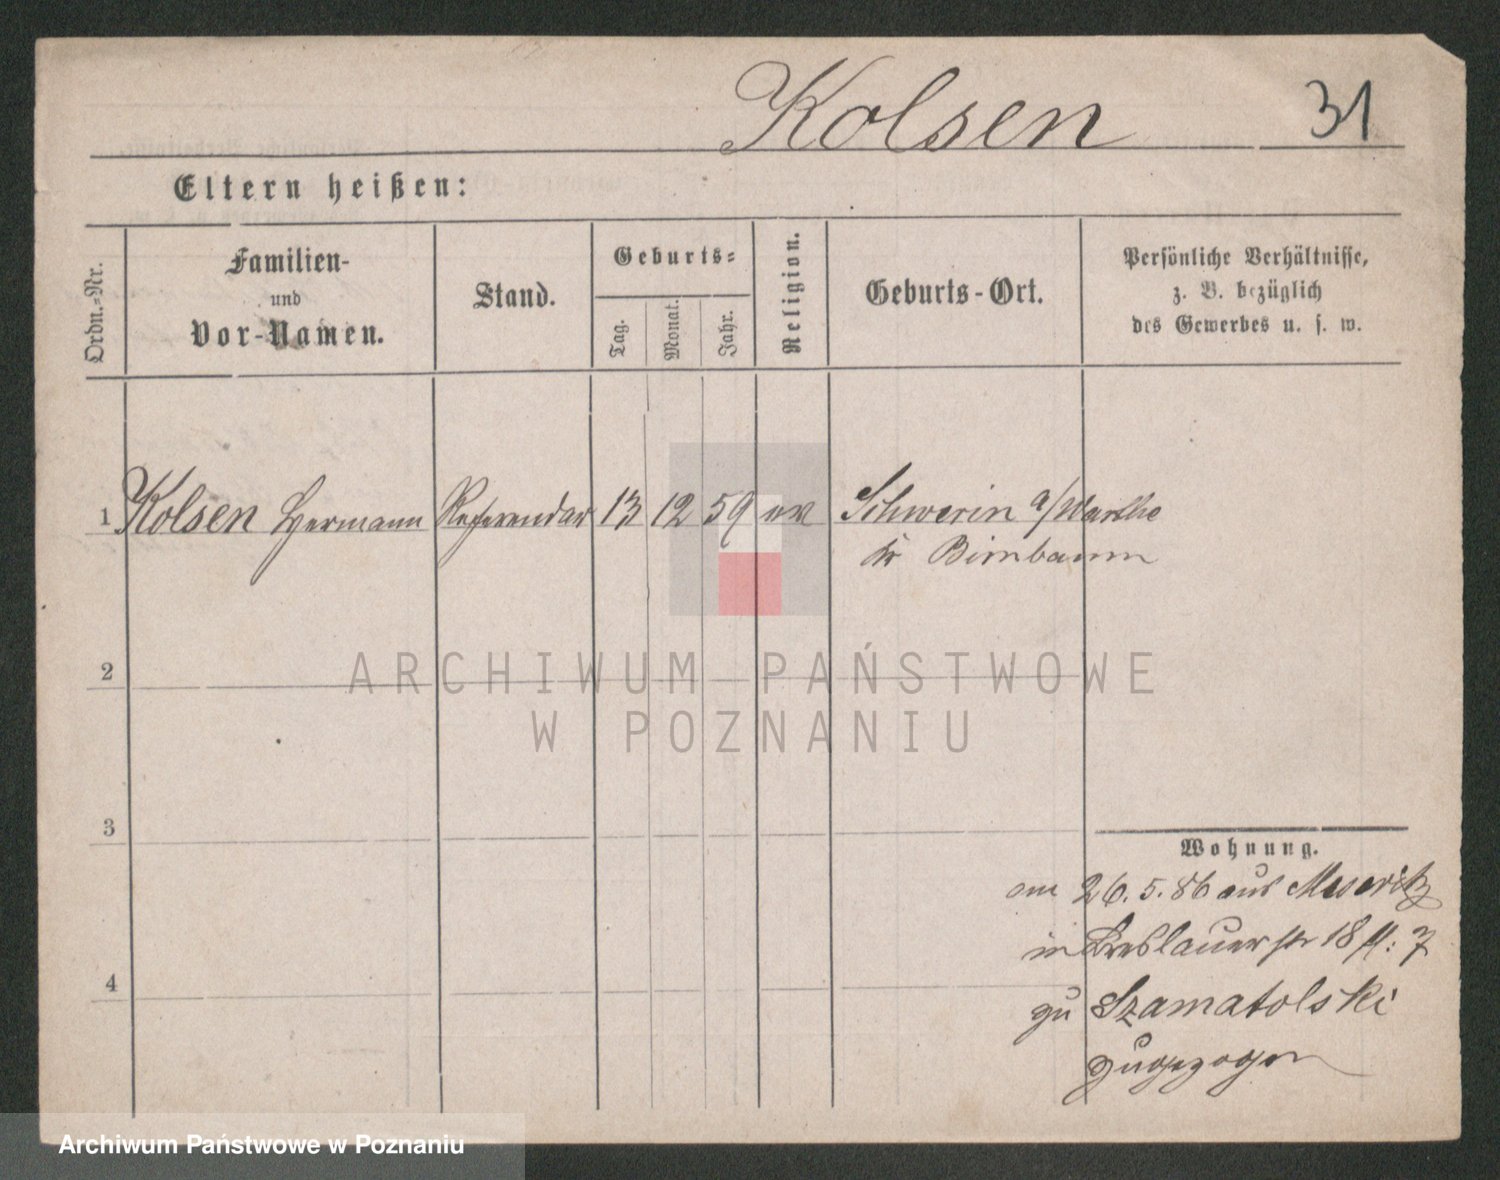 Kolsen 31
Eltern heißen:
Ordn.-Nr.
Familien-
und
Vor-Namen.
Stand.
Geburts-
Tag.
Monat.
Jahr.
Religion.
Geburts-Ort.
Persönliche Verhältnisse,
z. B. bezüglich
des Gewerbes u. s. w.
1 Kolsen Hermann Referendar 13 12 59 ev Schwerin a/Warthe
Kr Birnbaum
2
ARCHIWUM PAŃSTWOWE
W POZNANIU
3
Wohnung.
am 26.5.86 aus Meseritz
in Breslauer str 18 II: 7
4
zu Szamatolski
zugezogen
Archiwum Państwowe w Poznaniu